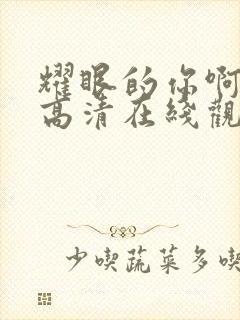 耀眼的你啊
高清在綫觀
少喫蔬菜多喫